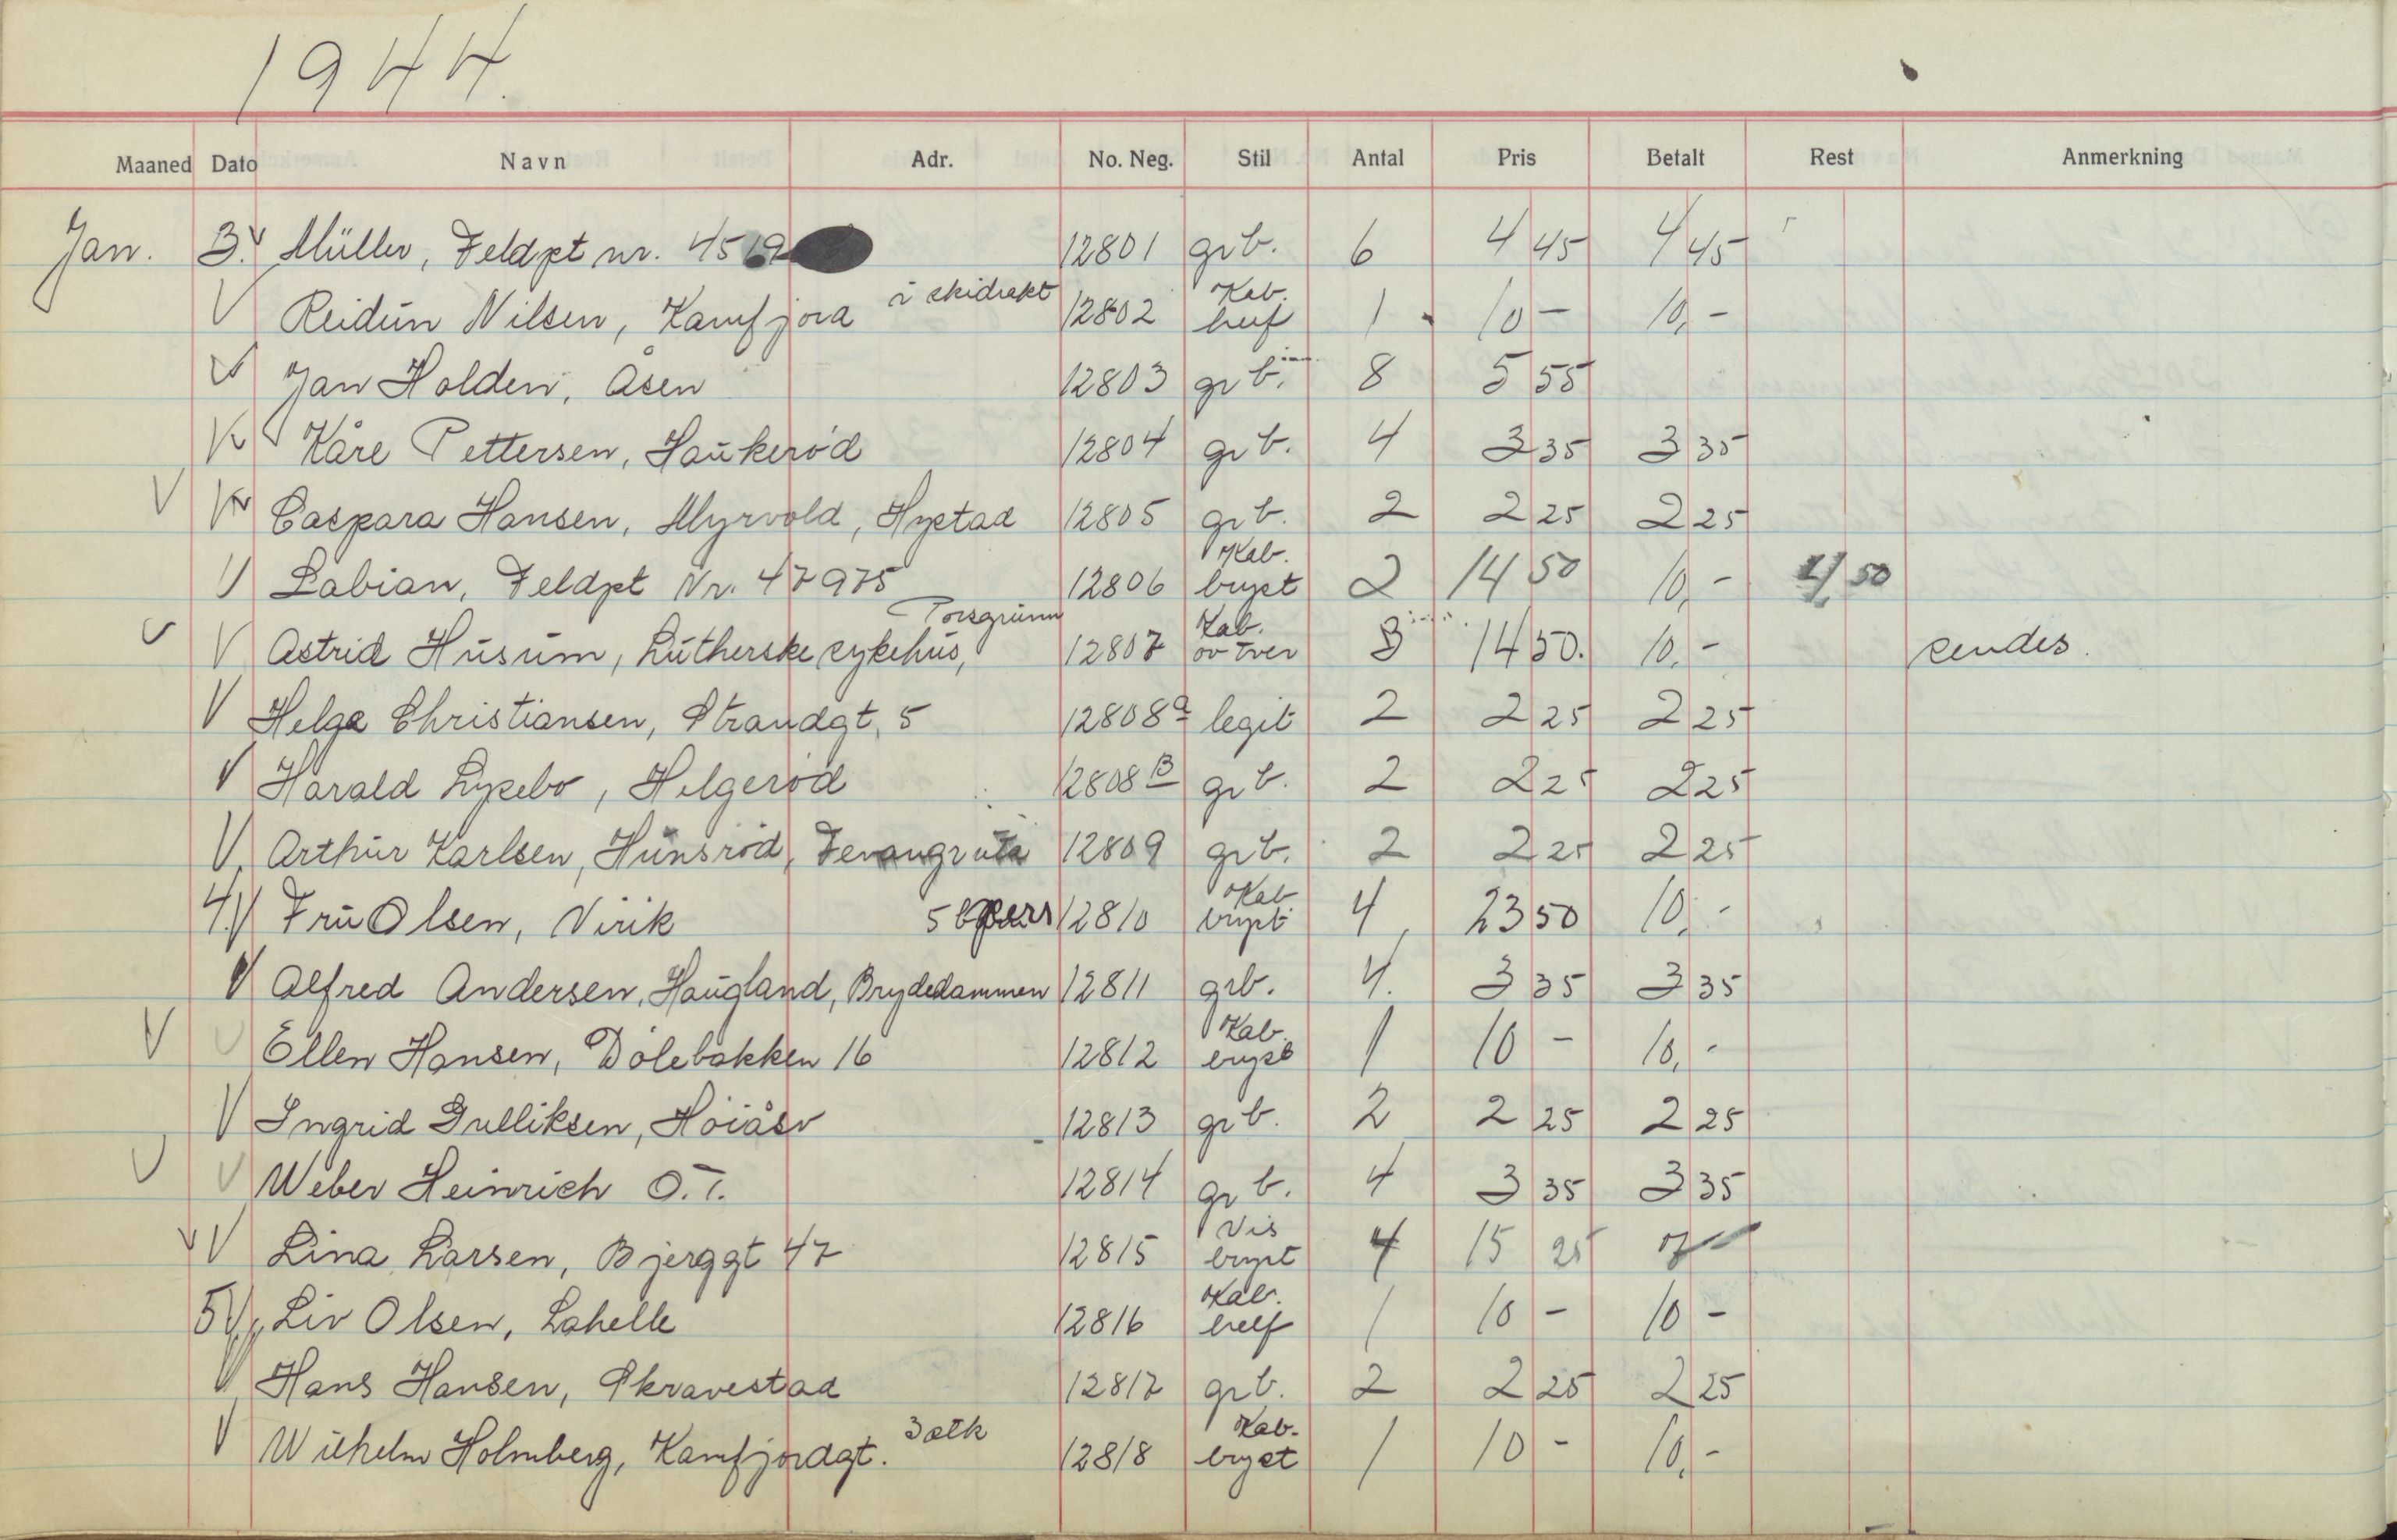 1944.
Maaned Dato Navn Adr. No. Neg. Stil Antal Pris Betalt Rest Anmerkning
Jan. 3. Müller, Feldpt nr. 4519 12801 grb. 6 4 45 4 45
Reidun Nilsen, Kamfjord i skidrakt 12802 Kab. helf 1 10 - 10,-
Jan Holden, Åsen 12803 grb. 8 5 55
Kåre Pettersen, Haukerød 12804 grb. 4 3 35 3 35
Caspara Hansen, Myrvold, Hystad 12805 grb. 2 2 25 2 25
Labian, Feldpt Nr. 47975 12806 Kab. bryst 2 14 50 10,- 4,50
Astrid Husum, Lutherske sykehus, Porsgrunn 12807 Kab. ov tver 3 14 50. 10,- sendes.
Helga Christiansen, Strandgt, 5 12808a legit 2 2 25 2 25
Harald Lysebo, Helgerød 12808B grb. 2 2 25 2 25
Arthur Karlsen, Hunsrød, 12809 grb. 2 2 25 2 25
4. Fru Olsen, Virik 5 pers 12810 Kab bryst 4 23 50 10,-
Alfred Andersen, Haugland, Brydedammen 12811 grb. 4. 3 35 3 35
Ellen Hansen, Dølebakken 16 12812 Kab. bryst 1 10 - 10,-
Ingrid Gulliksen, Høiåsv 12813 grb. 2 2 25 2 25
Weber Heinrich O.T. 12814 grb. 4 3 35 3 35
Lina Larsen, Bjerggt 47 12815 Vis bryst 4 15 25 7 -
5 Liv Olsen, Lahelle 12816 Kab. helf 1 10 - 10 -
Hans Hansen, Skravestad 12817 grb. 2 2 25 2 25
Wilhelm Holmberg, Kamfjordgt. 3 stk 12818 Kab. bryst 1 10 - 10,-